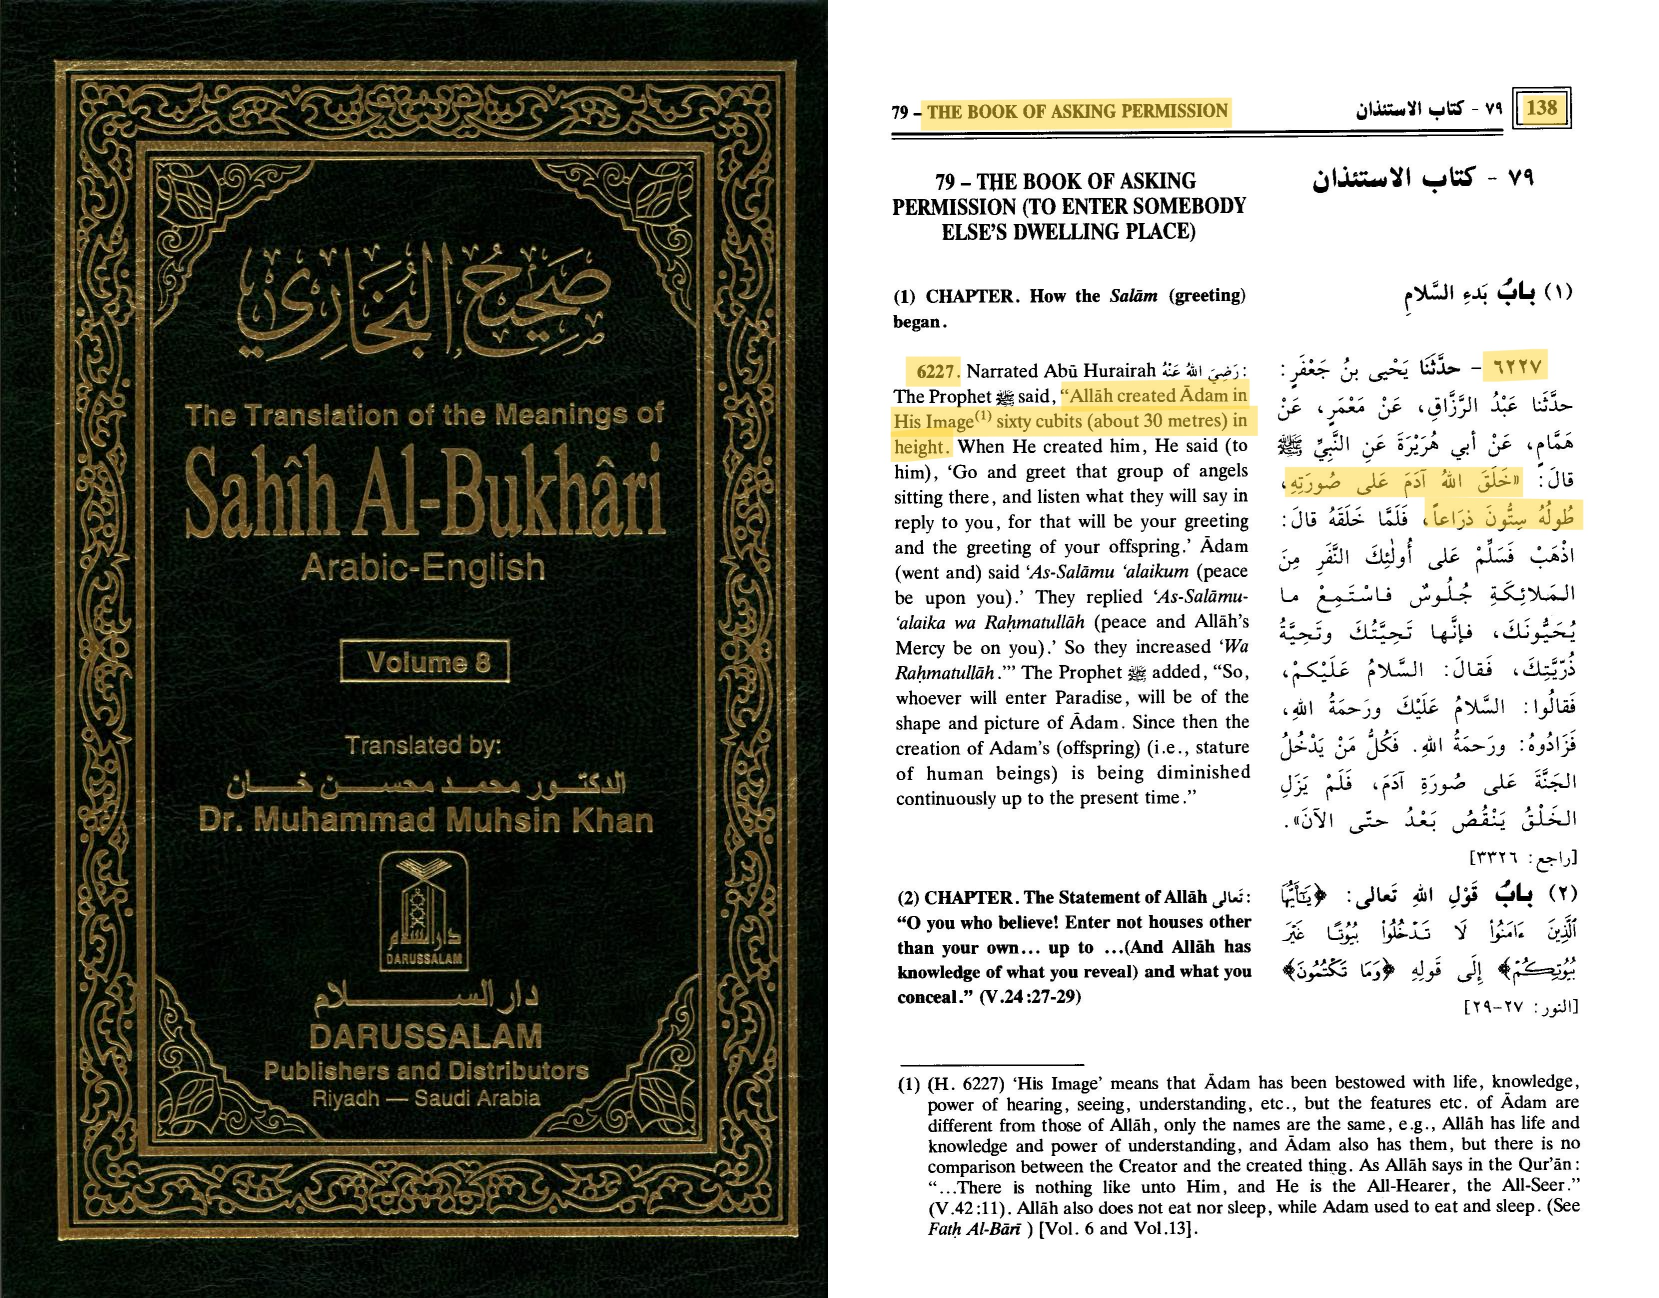 صحيح البخاري
The Translation of the Meanings of
Sahîh Al-Bukhâri
Arabic-English
Volume 8
Translated by:
الدكتور محمد محسن خان
Dr. Muhammad Muhsin Khan
دار السلام
DARUSSALAM
دار السلام
DARUSSALAM
Publishers and Distributors
Riyadh — Saudi Arabia
79 – THE BOOK OF ASKING PERMISSION
٧٩ - كتاب الاستئذان
138
79 – THE BOOK OF ASKING
PERMISSION (TO ENTER SOMEBODY
ELSE'S DWELLING PLACE)
(1) CHAPTER. How the Salām (greeting)
began.
6227. Narrated Abū Hurairah رَضِيَ اللهُ عَنْهُ:
The Prophet ﷺ said, “Allāh created Ādam in
His Image(1) sixty cubits (about 30 metres) in
height. When He created him, He said (to
him), ‘Go and greet that group of angels
sitting there, and listen what they will say in
reply to you, for that will be your greeting
and the greeting of your offspring.’ Ādam
(went and) said ‘As-Salāmu ‘alaikum (peace
be upon you).’ They replied ‘As-Salāmu-
‘alaika wa Raḥmatullāh (peace and Allāh’s
Mercy be on you).’ So they increased ‘Wa
Raḥmatullāh.’” The Prophet ﷺ added, “So,
whoever will enter Paradise, will be of the
shape and picture of Ādam. Since then the
creation of Adam’s (offspring) (i.e., stature
of human beings) is being diminished
continuously up to the present time.”
(2) CHAPTER. The Statement of Allāh تَعالى:
“O you who believe! Enter not houses other
than your own... up to ...(And Allāh has
knowledge of what you reveal) and what you
conceal.” (V.24:27-29)
٧٩ - كتاب الاستئذان
(١) بابُ بَدءِ السَّلامِ
٦٢٢٧ - حدَّثَنا يَحْيى بنُ جَعْفَرٍ:
حدَّثَنا عَبْدُ الرَّزَّاقِ، عَنْ مَعْمَرٍ، عَنْ
هَمَّامٍ، عَنْ أبي هُرَيْرَةَ عَنِ النَّبِيِّ ﷺ
قالَ: «خَلَقَ اللهُ آدَمَ عَلى صُورَتِهِ،
طُولُهُ سِتُّونَ ذِرَاعاً، فَلَمَّا خَلَقَهُ قالَ:
اذْهَبْ فَسَلِّمْ عَلى أُولٰئِكَ النَّفَرِ مِنَ
المَلائِكَةِ جُلُوسٌ فاسْتَمِعْ ما
يُحَيُّونَكَ، فإنَّها تَحِيَّتُكَ وتَحِيَّةُ
ذُرِّيَّتِكَ، فَقالَ: السَّلامُ عَلَيْكمْ،
فَقالُوا: السَّلامُ عَلَيْكَ ورَحمَةُ اللهِ،
فَزَادُوهُ: ورَحمَةُ اللهِ. فَكلُّ مَنْ يَدْخُلُ
الجَنَّةَ عَلى صُورَةِ آدَمَ، فَلَمْ يَزَلِ
الخَلْقُ يَنْقُصُ بَعْدُ حتَّى الآنَ».
[راجع: ٣٣٢٦]
(٢) بابُ قَوْلِ اللهِ تَعالى: ﴿يَـٰٓأَيُّهَا
ٱلَّذِينَ ءَامَنُوا۟ لَا تَدْخُلُوا۟ بُيُوتًا غَيْرَ
بُيُوتِكُمْ﴾ إلَى قَولِهِ ﴿وَمَا تَكْتُمُونَ﴾
[النور: ٢٧-٢٩]
(1) (H. 6227) ‘His Image’ means that Ādam has been bestowed with life, knowledge,
power of hearing, seeing, understanding, etc., but the features etc. of Ādam are
different from those of Allāh, only the names are the same, e.g., Allāh has life and
knowledge and power of understanding, and Ādam also has them, but there is no
comparison between the Creator and the created thing. As Allāh says in the Qur’ān:
“...There is nothing like unto Him, and He is the All-Hearer, the All-Seer.”
(V.42:11). Allāh also does not eat nor sleep, while Adam used to eat and sleep. (See
Fatḥ Al-Bārī ) [Vol. 6 and Vol.13].